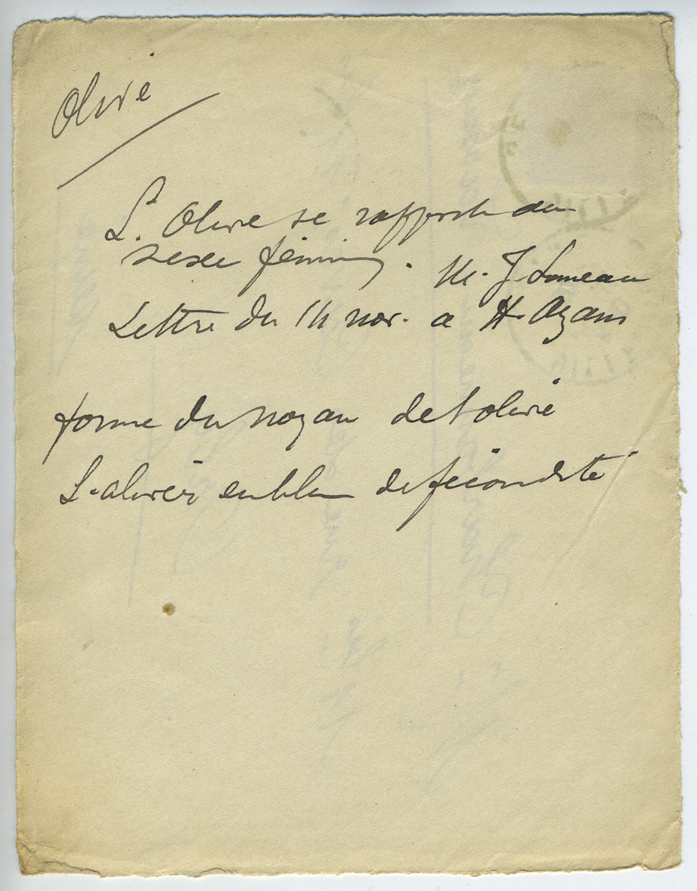 Olive
L'Olive se rapporte au
sexe féminin. M. J.
Lettre du 14 nov. a H.
forme du noyau de l'olive
L'olivier emblem de fécondité